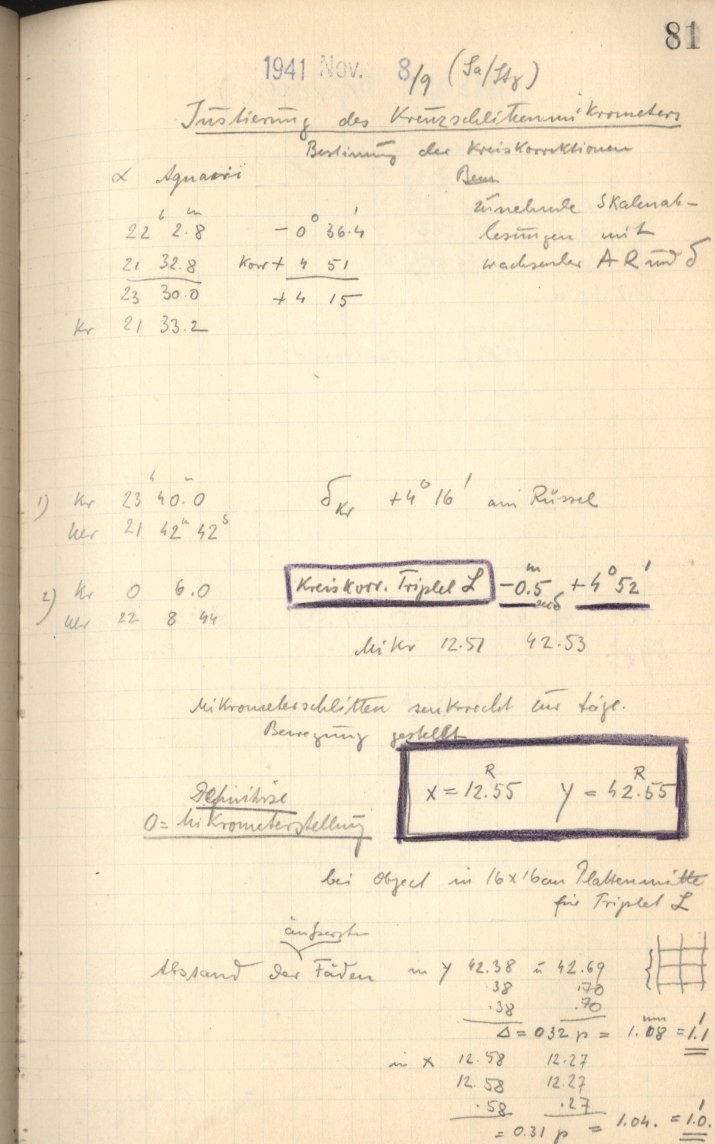 81
1941 Nov. 8/9 (Sa/Stz)
Justierung des Kreuzschlittenmikrometers
Bestimung der Kreiskorrektionen
α Aquarii Bem
zunehmende Skalenab-
22ʰ 2.8ᵐ −0° 36.4' lesungen mit
21 32.8 Korr + 4 51 wachsender AR und δ
23 30.0 + 4 15
Kr 21 33.2
1) Kr 23ʰ 40.0ᵐ δKr +4° 16' am Rüssel
Uhr 21 42ᵐ 42ˢ
2) Kr 0 6.0 Kreiskorr. Triplet L −0.5ᵐ und +4° 52'
Uhr 22 8 44
Mikr 12.51 42.53
Mikrometerschlitten senkrecht zur tägl.
Bewegung gestellt
x = 12.55ᴿ y = 42.55ᴿ
Definitive
0 = Mikrometerstellung
bei Object in 16x16cm Plattenmitte
für Triplet L
äußersten
Abstand der Fäden in y 42.38 u 42.69
.38 .70
.38 .70
Δ = 0.32 p = 1.08ᵐᵐ = 1.1'
in x 12.58 12.27
12.58 12.27
.58 .27
= 0.31 p = 1.04. = 1.0'